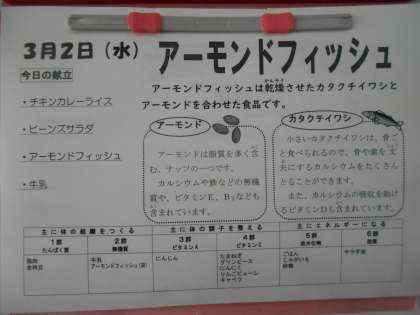 3月2日（水） アーモンドフィッシュ
今日の献立
・チキンカレーライス
・ビーンズサラダ
・アーモンドフィッシュ
・牛乳
アーモンドフィッシュは乾燥させたカタクチイワシと
アーモンドを合わせた食品です。
アーモンド
アーモンドは脂質を多く含
む、ナッツの一つです。
カルシウムや鉄などの無機
質や、ビタミンE、B₂なども
含まれています。
カタクチイワシ
小さいカタクチイワシは、骨ご
と食べられるので、骨や歯を丈
夫にするカルシウムをたくさん
とることができます。
また、カルシウムの吸収を助け
るビタミンDも含まれています。
主に体の組織をつくる 主に体の調子を整える 主にエネルギーになる
1群 2群 3群 4群 5群 6群
たんぱく質 無機質 ビタミンA ビタミンC 炭水化物 脂質
鶏肉 牛乳 にんじん たまねぎ ごはん サラダ油
アーモンドフィッシュ(袋) グリンピース じゃがいも
にんにく 砂糖
りんごピューレ
キャベツ